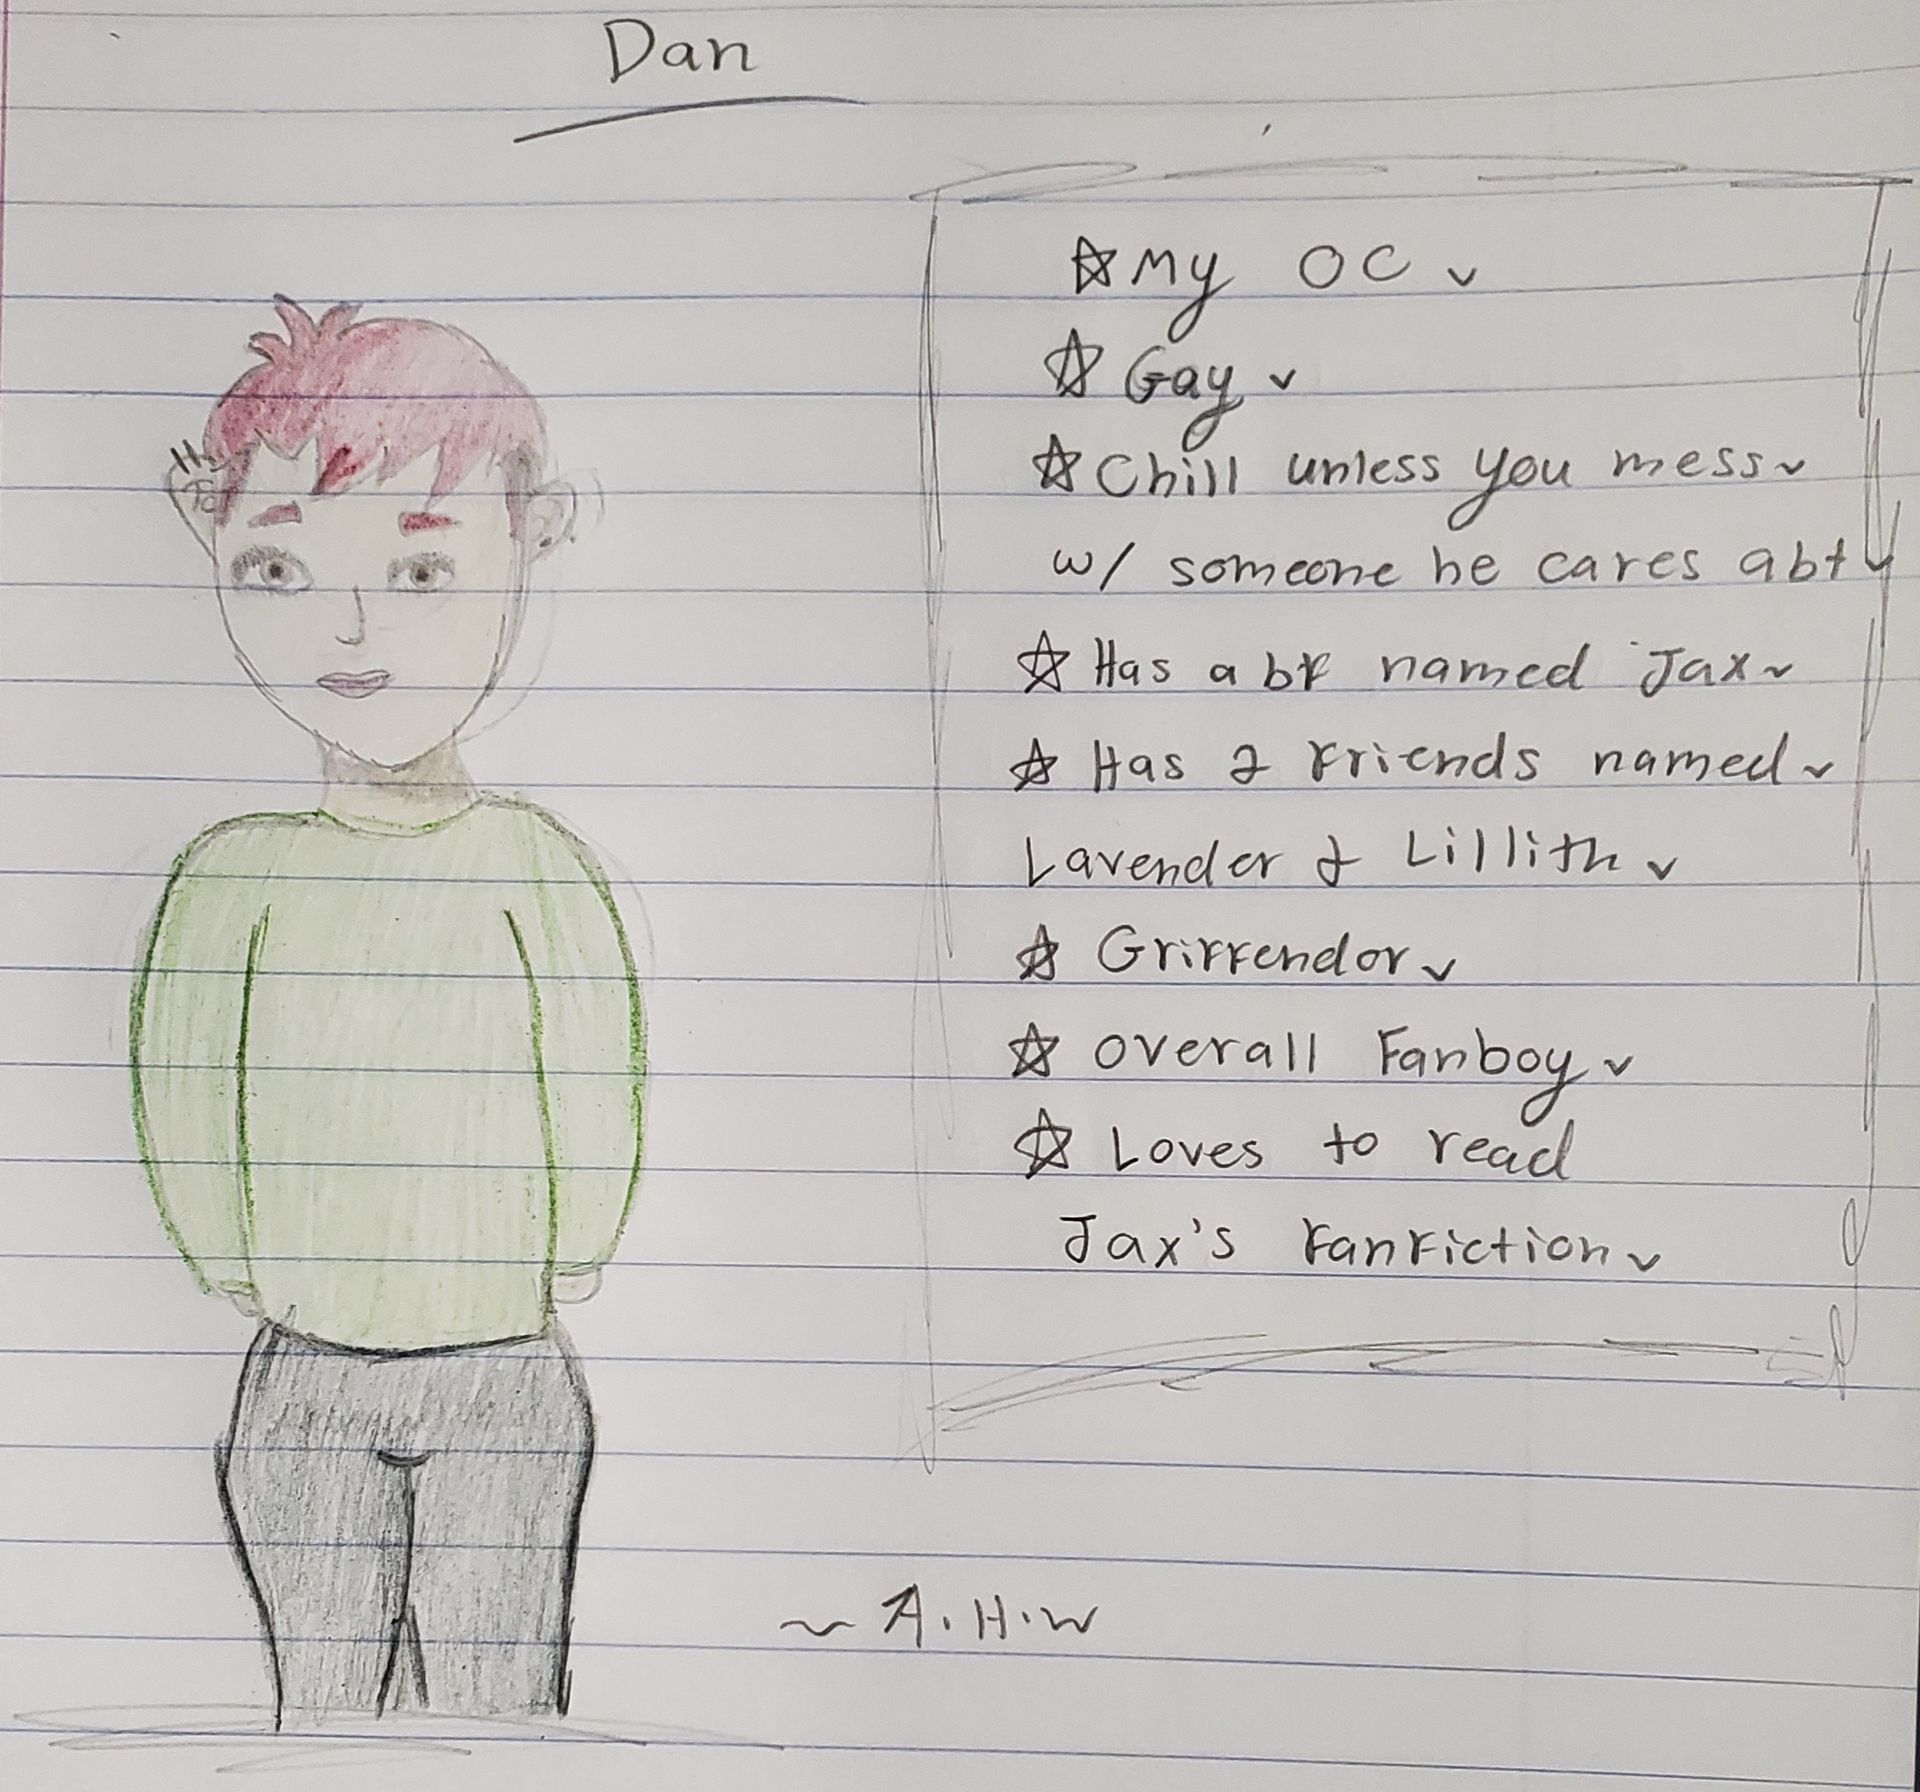 Dan
☆ My OC ✓
☆ Gay ✓
☆ Chill unless you mess ✓
w/ someone he cares abt ✓
☆ Has a bf named Jax ✓
☆ Has 2 friends named ✓
Lavender & Lillith ✓
☆ Griffendor ✓
☆ Overall Fanboy ✓
☆ Loves to read
Jax's fanfiction ✓
~ A.H.W